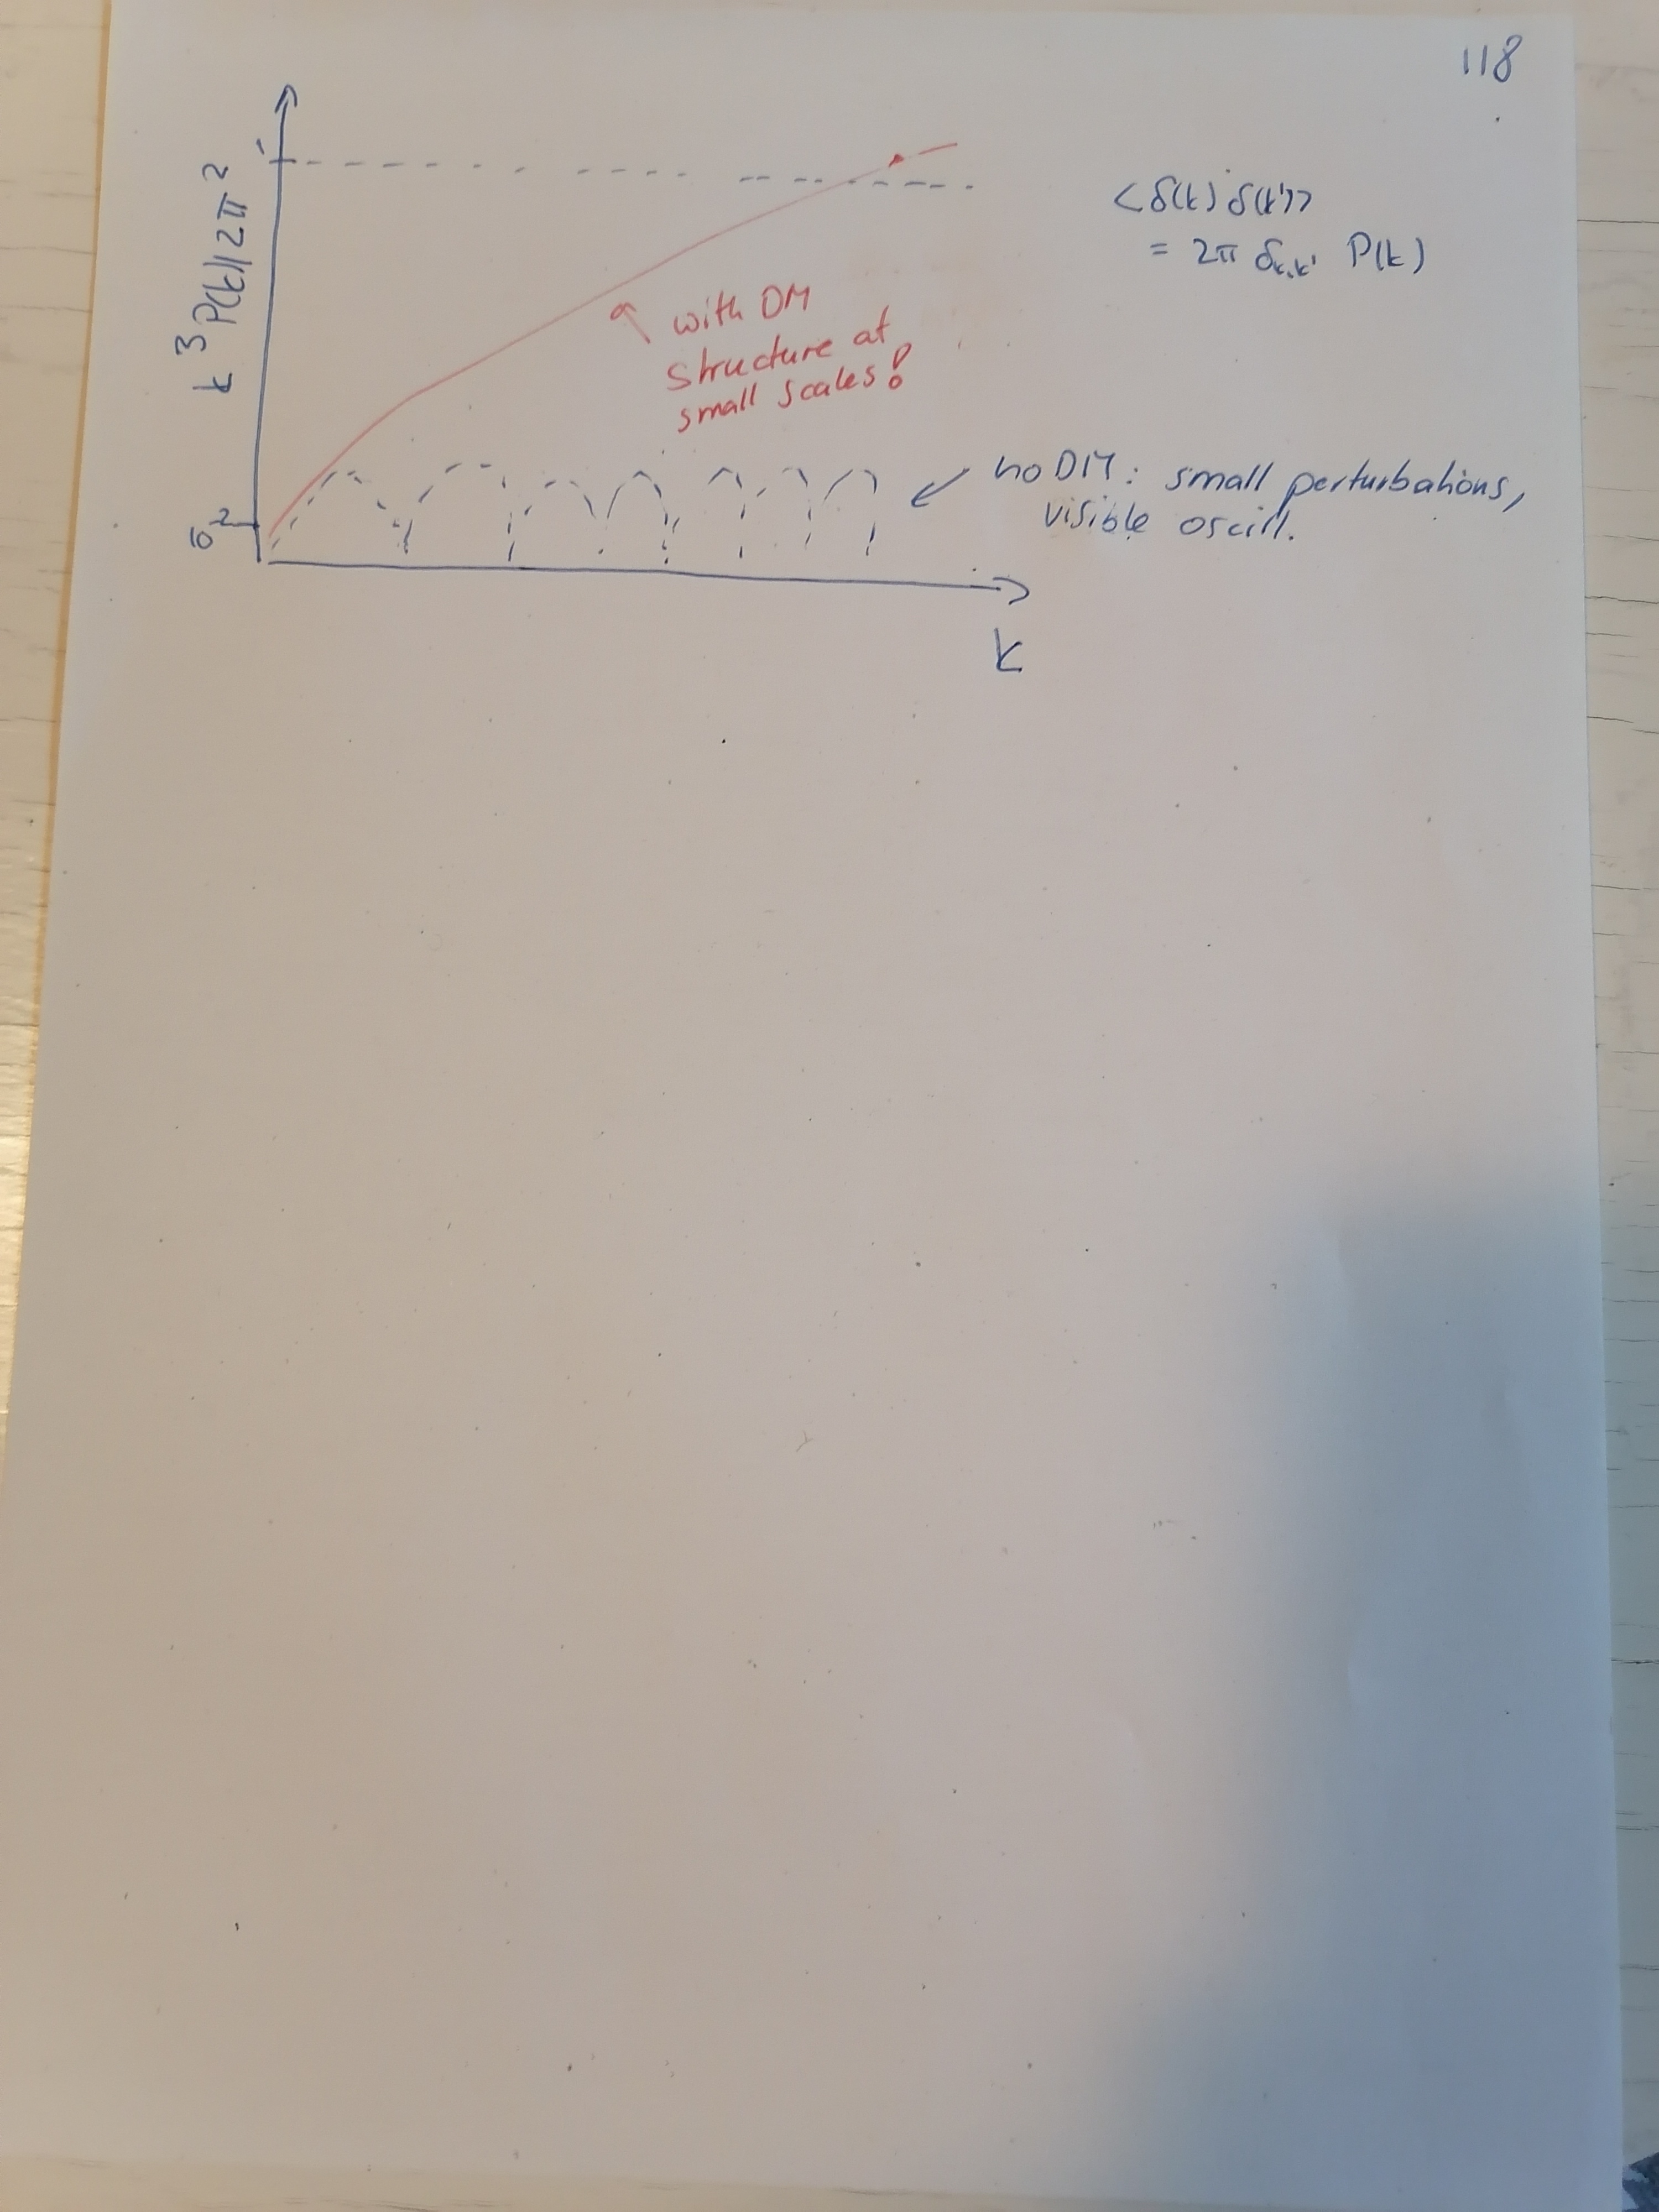 118
1
k³ P(k)/2π²
<δ(k) δ(k')>
= 2π δk,k' P(k)
with DM
structure at
small scales!
no DM: small perturbations,
visible oscill.
k